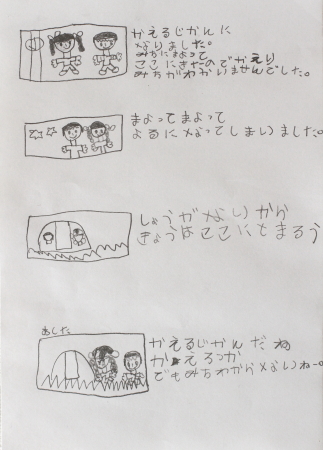 かえるじかんに
なりました。
みちにまよって
ここにきたのでかえり
みちがわかいませんでした。
まよってまよって
よるになってしまいました。
しょうがないから
きょうはここにとまろう
あした
かえるじかんだね
かえろっか
でもみちわからないねー。